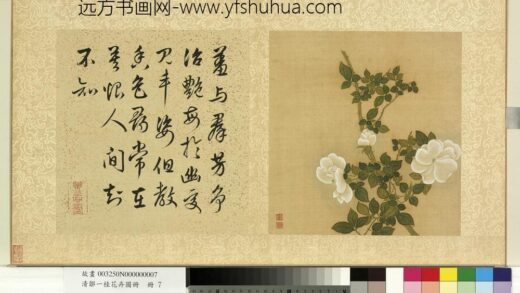 远方书画网-www.yfshuhua.com
羞与群芳争
冶艷每於幽處
見丰姿但教
香色尋常在
莫恨人間
不知
故畫 003250N000000007
清鄒一桂花卉圖冊 冊 7